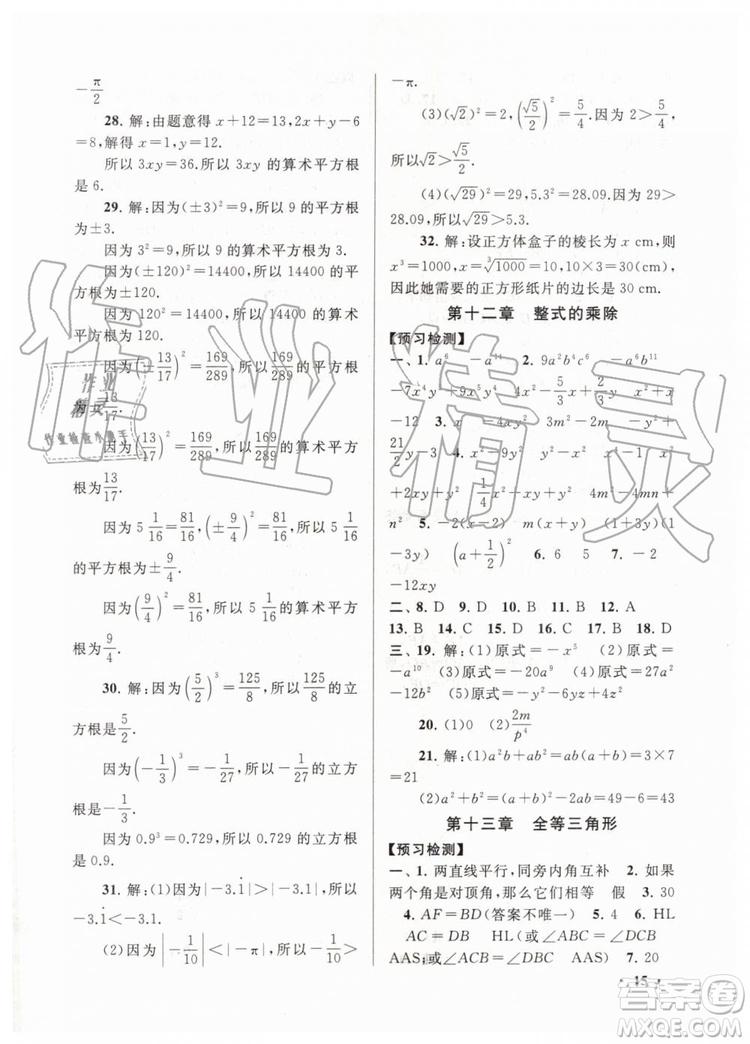 −π/2
28. 解:由题意得 x+12=13,2x+y−6
=8,解得 x=1,y=12.
所以 3xy=36.所以 36 的算术平方根
是 6.
29. 解:因为(±3)²=9,所以 9 的平方根为
±3.
因为 3²=9,所以 9 的算术平方根为 3.
因为(±120)²=14400,所以 14400 的平
方根为±120.
因为 120²=14400,所以 14400 的算术
平方根为 120.
(±13/17)²=169/289,所以 169/289 的平方根
13/17.
因为(13/17)²=169/289,所以 169/289 的算术平方
根为 13/17.
因为 5 1/16=81/16,(±9/4)²=81/16,所以 5 1/16
的平方根为±9/4.
因为(9/4)²=81/16,所以 5 1/16 的算术平方
根为 9/4.
30. 解:因为(5/2)³=125/8,所以 125/8 的立方
根是 5/2.
因为(−1/3)³=−1/27,所以−1/27 的立方根
是−1/3.
因为 0.9³=0.729,所以 0.729 的立方根是
0.9.
31. 解:(1)因为|−3.1̇|>|−3.1|,所以
−3.1̇<−3.1.
(2)因为|−1/10|<|−π|,所以−1/10>
−π.
(3)(√2)²=2,(√5/2)²=5/4.因为 2>5/4,
所以√2>√5/2.
(4)(√29)²=29,5.3²=28.09.因为 29>
28.09,所以√29>5.3.
32. 解:设正方体盒子的棱长为 x cm,则
x³=1000,x=∛1000=10,6x²=600.
因此她需要的正方形纸片的边长是 30 cm.
第十二章 整式的乘除
【预习检测】
一、1. a⁶ 2. 9a²b⁶ −a⁶b¹¹
−7x⁴ −4m² −2
n² 5. −2(x−2) m(x+y) (1+x)(1
−3x) (a+1/2)² 6. 5 7. −2
−12xy
二、8. D 9. D 10. B 11. B 12. A
13. B 14. C 15. D 16. B 17. B 18. D
三、19. 解:(1)原式=−x⁵ (2)原式=
−10a⁶ (3)原式=0 (4)原式=27a²
−12b² (5)原式=
20. (1)0 (2)2m/p⁴
21. 解:(1)a²b+ab²=ab(a+b)=3×7
=21
(2)a²+b²=(a+b)²−2ab=49−6=43
第十三章 全等三角形
【预习检测】
一、1. 两直线平行,同旁内角互补 2. 如果
两个角是对顶角,那么它们相等 假 3. 30
4. AF=BD(答案不唯一) 5. 4 6. HL
AC=DB HL(或∠ABC=∠DCB
AAS;或∠ACB=∠DBC AAS) 7. 20
15
作业精灵
作业检查小帮手
答案圈
MXQE.COM